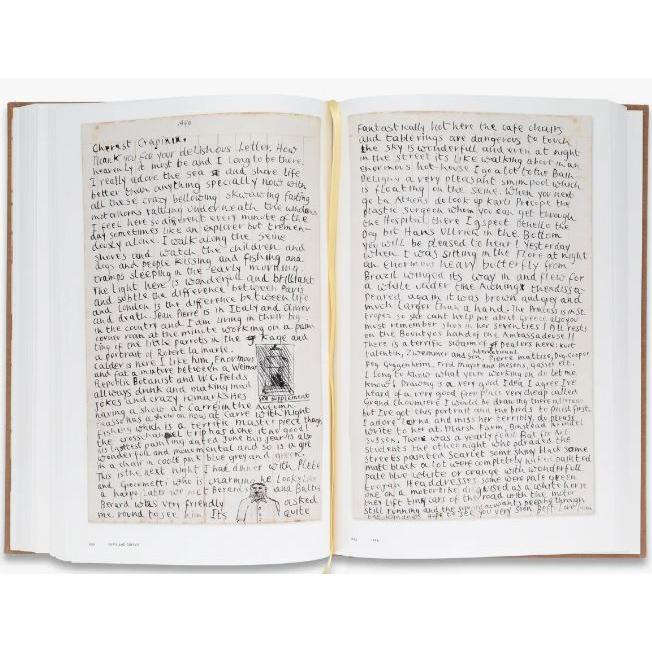 Thank you for your delishous Letter. How
heavenly it must be and I long to be there.
I really adore the sea and share life
better than anything specially now with
all these crazy bellowing skwawing farting
motorhorns rattling underneath the windows
I feel here so different every minute of the
day sometimes like an explorer but tremen-
dously alone. I walk along the Seine
shores and watch the children and
dogs and people kissing and fishing and
tramps sleeping in the early morning.
The Light here is wonderful and brilliant
and subtle the difference between Paris
and London is the difference between life
and death. Jean Pierre is in Italy and Olivier
in the country and I am living in their big
corner room at the minute working on a pain
ting of the little parrots in the Kage and
a portrait of Robert la marle.
Calder is here I like him, Enormous
and fat a mixture between a Weimar
Republic Botanist and W.C. Fields
allways drunk and making mad
jokes and crazy remarks Hes
see supplement
having a show at Carre in the Autumn
Picasso has a show on now at Carre with Night
fishing which is a terrific master piece though
the cross channel trip has done it no good!
his lattest painting dated June this year is also
wonderfull and monumental and so is a girl
in a chair in cool pink blue grey and green.
This is the next night I had dinner with
and Giacometti who is charming he looks like
a harpo Later we met Berard and Baltus
Berard was very friendly asked
me round to see him Its quite
Fantastically hot here the cafe chairs
and tablerings are dangerous to touch
the sky is wonderfull and even at night
in the street its Like walking about in an
enormous hot-house. I go a lot to the Bath
Deligny a very pleasant swimpool which
is floating on the Seine. When you next
go to Athens do look up Karli Procope the
plastic Surgeon whom you can get through
the Hospital there I spect
Boy but Hans Ullrich in the Bottom
you will be pleased to hear! Yesterday
when I was sitting in the Flore at night
an enormous heavy butterfly from
Brazil winged its way in and flew for
a while under the Awning then disa-
peared again it was brown and grey and
much Larger than a hand. The Princess is in St.
Tropez so she cant help me about Greece also you
must remember shes in her seventies! All rests
on the Bountyos hand of the Ambassadeur!!
There is a terrific swarm of international
dealers here: Kurt
Valentin, Zwemmer and son, Pierre Mattiss, Dug. Cooper
Peg. Guggenheim, Fred. Mayor and Mesens, Gasser etc.
I Long to know what youre working on do let me
know! Drawing is a very good Idea, I agree Ive
heard of a very good free place very cheap called
Grand Choumiere I would be drawing there allready
but Ive got this portrait and the birds to finish first.
I adore Lorna and miss her terribly, do please
write to her at Marsh Farm, Binstead Arundel
Sussex. There was a yearly
Students the other night who paraded the
streets painted Scarlet some shiny black some
matt black a lot were completely nude painted
pale blue white or orange with wonderfull
Headdresses some were pale green
one on a motorbike disguised as a white horse
still running and the